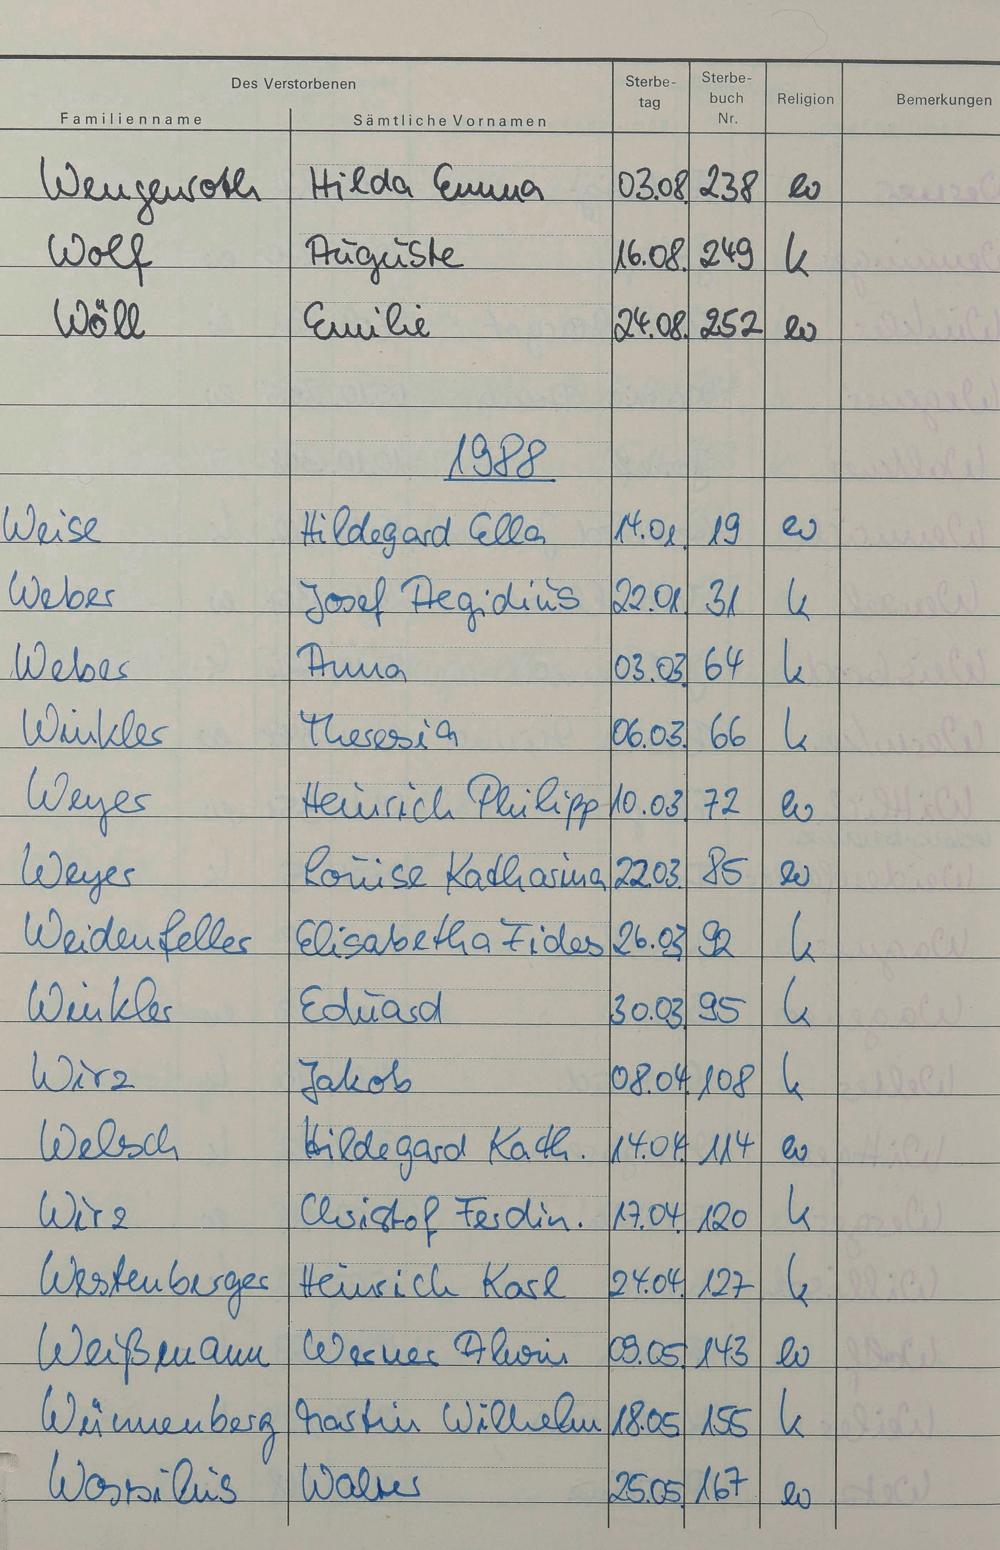 Des Verstorbenen Sterbe- Sterbe- Religion Bemerkungen
tag buch
Familienname Sämtliche Vornamen Nr.
Wengenroth Hilda Emma 03.08. 238 ev
Wolf Auguste 16.08. 249 k
Wöll Emilie 24.08. 252 ev
1988
Weise Hildegard Ella 14.01. 19 ev
Weber Josef Aegidius 22.01. 31 k
Weber Anna 03.03. 64 k
Winkler Theresia 06.03. 66 k
Weyer Heinrich Philipp 10.03. 72 ev
Weyer Louise Katharina 22.03. 85 ev
Weidenfeller Elisabetha Fides 26.03. 92 k
Winkler Eduard 30.03. 95 k
Wirz Jakob 08.04. 108 k
Welsch Hildegard Kath. 14.04. 114 ev
Wirz Christof Ferdin. 17.04. 120 k
Westenberger Heinrich Karl 24.04. 127 k
Weißmann Werner Alwin 09.05. 143 ev
Wünnenberg Martin Wilhelm 18.05. 155 k
Wassilius Walter 25.05. 167 ev